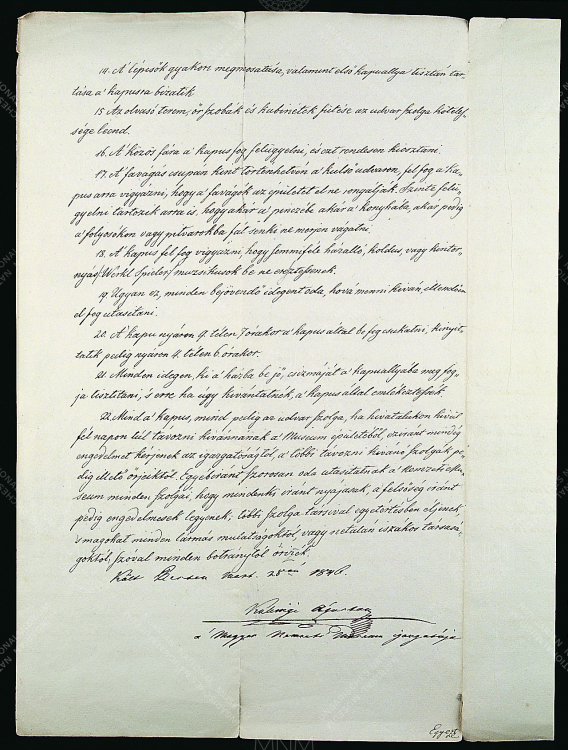 14. A' lépcsők gyakori megmosatása, valamint első kapuallya tisztán tar-
tása a' kapusra bizatik.
15 Az olvasó terem, őr szobák és kabinétek fűtése az udvar szolga kötelef-
sége leend.
16. A' közös fára a' kapus fog felügyelni, és azt rendesen kiosztani.
17. A' favágás csupán kent történhetvén a' külső udvaron, fel fog a' Ka-
pus arra vigyázni, hogy a' favágók az épületet el ne rongálják. Szinte felü-
gyelni tartozik arra is, hogy akár a' pinczék, akár a' konyhába, akár pedig
a' folyosókon vagy pitvarokba fát senki ne merjen vágatni.
18. A' kapus fel fog vigyázni, hogy semmiféle házalló, koldus, vagy kintor-
nyás (Werkl Spieler) muzsikusok be ne eresztefsenek.
19. Ugyan ez, minden bejövendő idegent oda, hová menni kiván, illendően
el fog utasitani.
20. A' kapu nyáron 9. télen 7 órakor a' kapus által be fog csukatni; kinyit-
tatik pedig nyáron 4. télen 6 órakor.
21. Minden idegen, ki a' házba be jő, csizmáját a' kapuallyába meg fog-
ja tisztitani; 's erre ha úgy kivántatnék, a' kapus által emlékeztefsék.
22. Mind a' kapus, mind pedig az udvar szolga, ha hivatalukon kivül
fél napon túl távozni kivánnának a' Museum épületéből, eziránt mindig
engedelmet kérjenek az igazgatóságtól, a' többi távozni kivánó szolgák pe-
dig illető őrjeiktől. Egyeberánt szorosan oda utasitatnak a' nemzeti Mu-
seum minden szolgái, hogy mindenki eránt nyájasak, a' felsőség eránt
pedig engedelmesek legyenek; többi szolga társaival egyetértésben éljenek,
's magokat minden lármás mulatságoktól, vagy netalán éjszakai társasá-
goktól, szóval minden botránytól őrizék.
Költ Pesten Mart. 28-án 1846.
Kubinyi Ágoston
a' Magyar Nemzeti Museum igazgatója